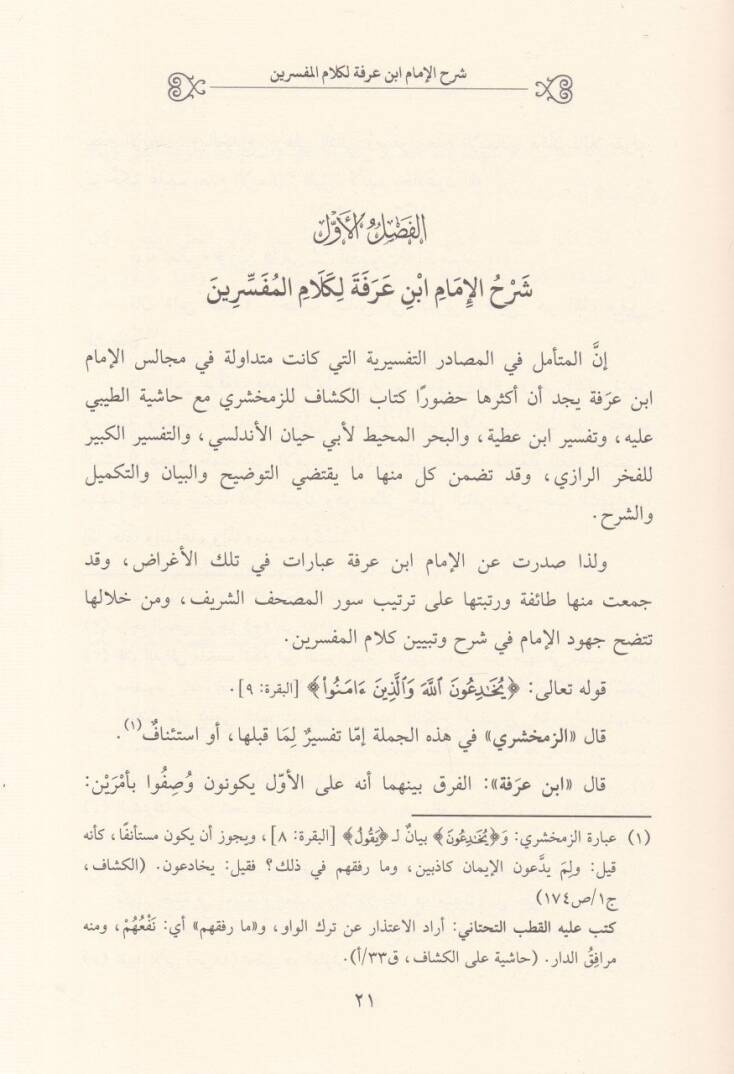 شرح الإمام ابن عرفة لكلام المفسرين
الفَصْلُ الأَوَّلُ
شَرْحُ الإِمَامِ ابْنِ عَرَفَةَ لِكَلَامِ المُفَسِّرِينَ
إنَّ المتأمل في المصادر التفسيرية التي كانت متداولة في مجالس الإمام
ابن عرَفة يجد أن أكثرها حضورًا كتاب الكشاف للزمخشري مع حاشية الطيبي
عليه، وتفسير ابن عطية، والبحر المحيط لأبي حيان الأندلسي، والتفسير الكبير
للفخر الرازي، وقد تضمن كل منها ما يقتضي التوضيح والبيان والتكميل
والشرح.
ولذا صدرت عن الإمام ابن عرفة عبارات في تلك الأغراض، وقد
جمعت منها طائفة ورتبتها على ترتيب سور المصحف الشريف، ومن خلالها
تتضح جهود الإمام في شرح وتبيين كلام المفسرين.
قوله تعالى: ﴿يُخَٰدِعُونَ ٱللَّهَ وَٱلَّذِينَ ءَامَنُوا۟﴾ [البقرة: ٩].
قال «الزمخشري» في هذه الجملة إمّا تفسيرٌ لِمَا قبلها، أو استئنافٌ(١).
قال «ابن عرَفة»: الفرق بينهما أنه على الأوّل يكونون وُصِفُوا بأمْرَيْن:
(١) عبارة الزمخشري: وَ﴿يُخَٰدِعُونَ﴾ بيانٌ لـ ﴿يَقُولُ﴾ [البقرة: ٨]، ويجوز أن يكون مستأنفًا، كأنه
قيل: ولِمَ يدَّعون الإيمان كاذبين، وما رفقهم في ذلك؟ فقيل: يخادعون. (الكشاف،
ج١/ص١٧٤)
كتب عليه القطب التحتاني: أراد الاعتذار عن ترك الواو، و«ما رفقهم» أي: نَفْعُهُمْ، ومنه
مرافِقُ الدار. (حاشية على الكشاف، ق٣٣/أ).
٢١